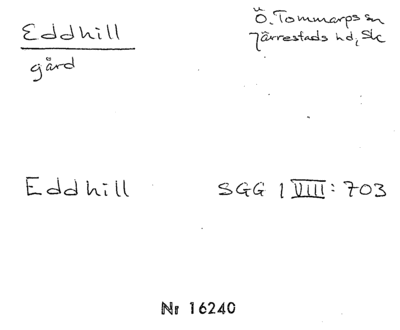 Eddhill
Ö. Tommarps sn
Järrestads hd, Sk
gård
Eddhill SGG 1 VIII: 703
Nr 16240